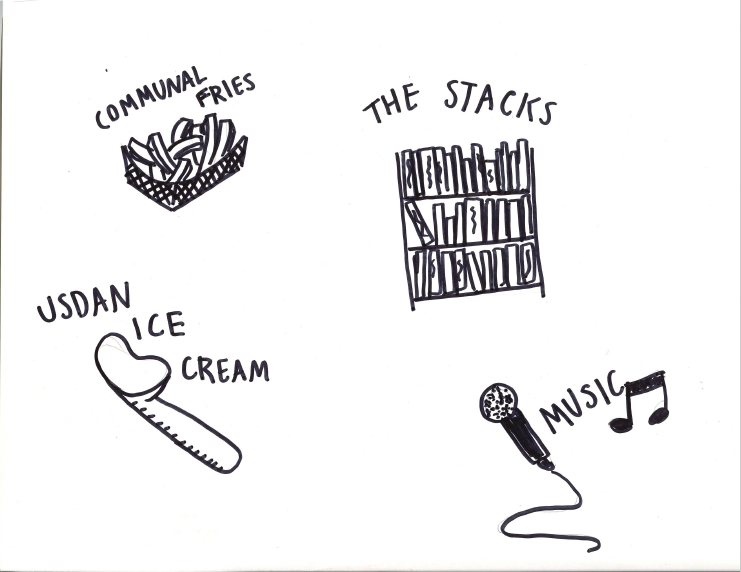 COMMUNAL
FRIES
THE STACKS
USDAN
ICE
CREAM
MUSIC